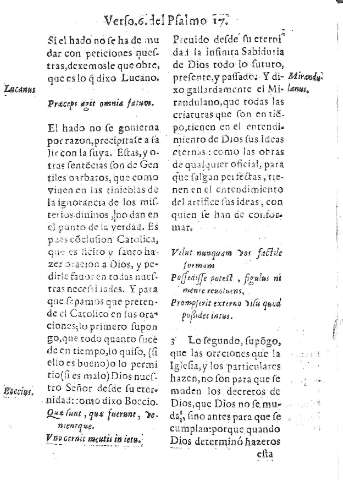 Verso.6. del Psalmo 17.
Si el hado no se ha de mu-
dar con peticiones nues-
tras, dexemosle que obre,
que es lo q̃ dixo Lucano.
Lucanus
Præceps agit omnia fatum.
El hado no se gouierna
por razon, precipitase a sa
lir con la suya. Estas, y o-
tras sentẽcias son de Gen
tiles barbaros, que como
viuen en las tinieblas de
la ignorancia de los mis-
terios diuinos, no dan en
el punto de la verdad. Es
pues cõclusion Catolica,
que es licito y santo haz-
er oracion a Dios, y pe-
dirle fauor en todas nues-
tras necessidades. Y para
que sepamos que preten-
de el Catolico en sus ora-
ciones; lo primero supon
go, que todo quanto suce
de en tiempo, lo quiso, (si
ello es bueno) o lo permi
tio (si es malo) Dios nues-
tro Señor desde su eter-
nidad: como dixo Boecio.
Boecius.
Quæ sunt, quæ fuerunt, ve-
nientque.
Vno cernit mentis in ictu.
Preuido desde su eterni
dad la infinita Sabiduria
de Dios todo lo futuro,
presente, y passado. Y di-
xo gallardamente el Mi-
Mirandu
randulano, que todas las
lanus.
criaturas que son en tiẽ-
po, tienen en el entendi-
miento de Dios sus Ideas
eternas: como las obras
de qualquier oficial, para
que salgan perfectas, tie-
nen en el entendimiento
del artifice sus ideas, con
quien se han de confor-
mar.
Velut nunquam
formam
Possedisse potest, figulus ni
mente
Prompserit externo
possidet intus.
3 Lo segundo, supõgo,
que las oraciones que la
Iglesia, y los particulares
hazen, no son para que se
muden los decretos de
Dios, que Dios no se mu-
da, sino antes para que se
cumplan: porque quando
Dios determinó hazeros
esta